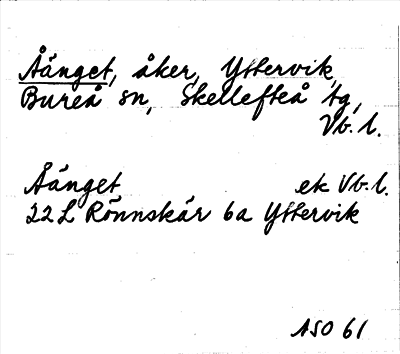 Åänget, åker, Yttervik,
Bureå sn, Skellefteå tg,
Vb. l.
Åänget ek Vb. l.
22 L Rönnskär 6a Yttervik
ASO 61